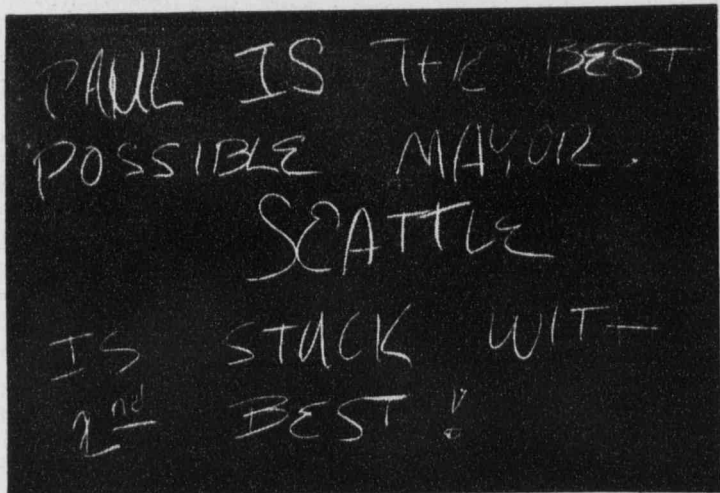 PAUL IS THE BEST
POSSIBLE MAYOR.
SEATTLE
IS STUCK WITH
2nd BEST!